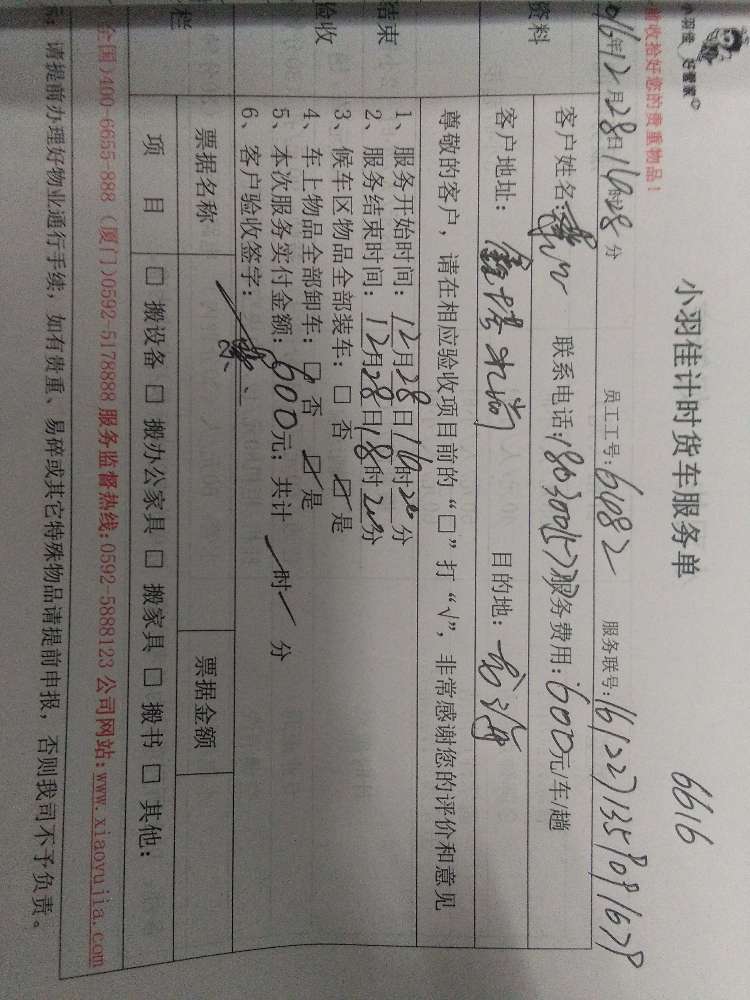 小羽佳 好管家
前收拾好您的贵重物品！
小羽佳计时货车服务单 6616
016年12月28日16时28分 员工工号：6482 服务联号：
资料
客户姓名： 联系电话： 服务费用：600元/车/趟
客户地址： 目的地：
尊敬的客户，请在相应验收项目前的“□”打“√”，非常感谢您的评价和意见
结束
验收
1、服务开始时间：12月28日16时20分
2、服务结束时间：12月28日18时20分
3、候车区物品全部装车：□ 否 ☑ 是
4、车上物品全部卸车：□ 否 ☑ 是
5、本次服务实付金额：600元；共计 时 分
6、客户验收签字：
票据名称 票据金额
栏
项 目 □ 搬设备 □ 搬办公家具 □ 搬家具 □ 搬书 □ 其他：
全国)400-6655-888 (厦门)0592-5178888 服务监督热线:0592-5888123 公司网站:www.xiaoyujia.com
示：请提前办理好物业通行手续，如有贵重、易碎或其它特殊物品请提前申报，否则我司不予负责。